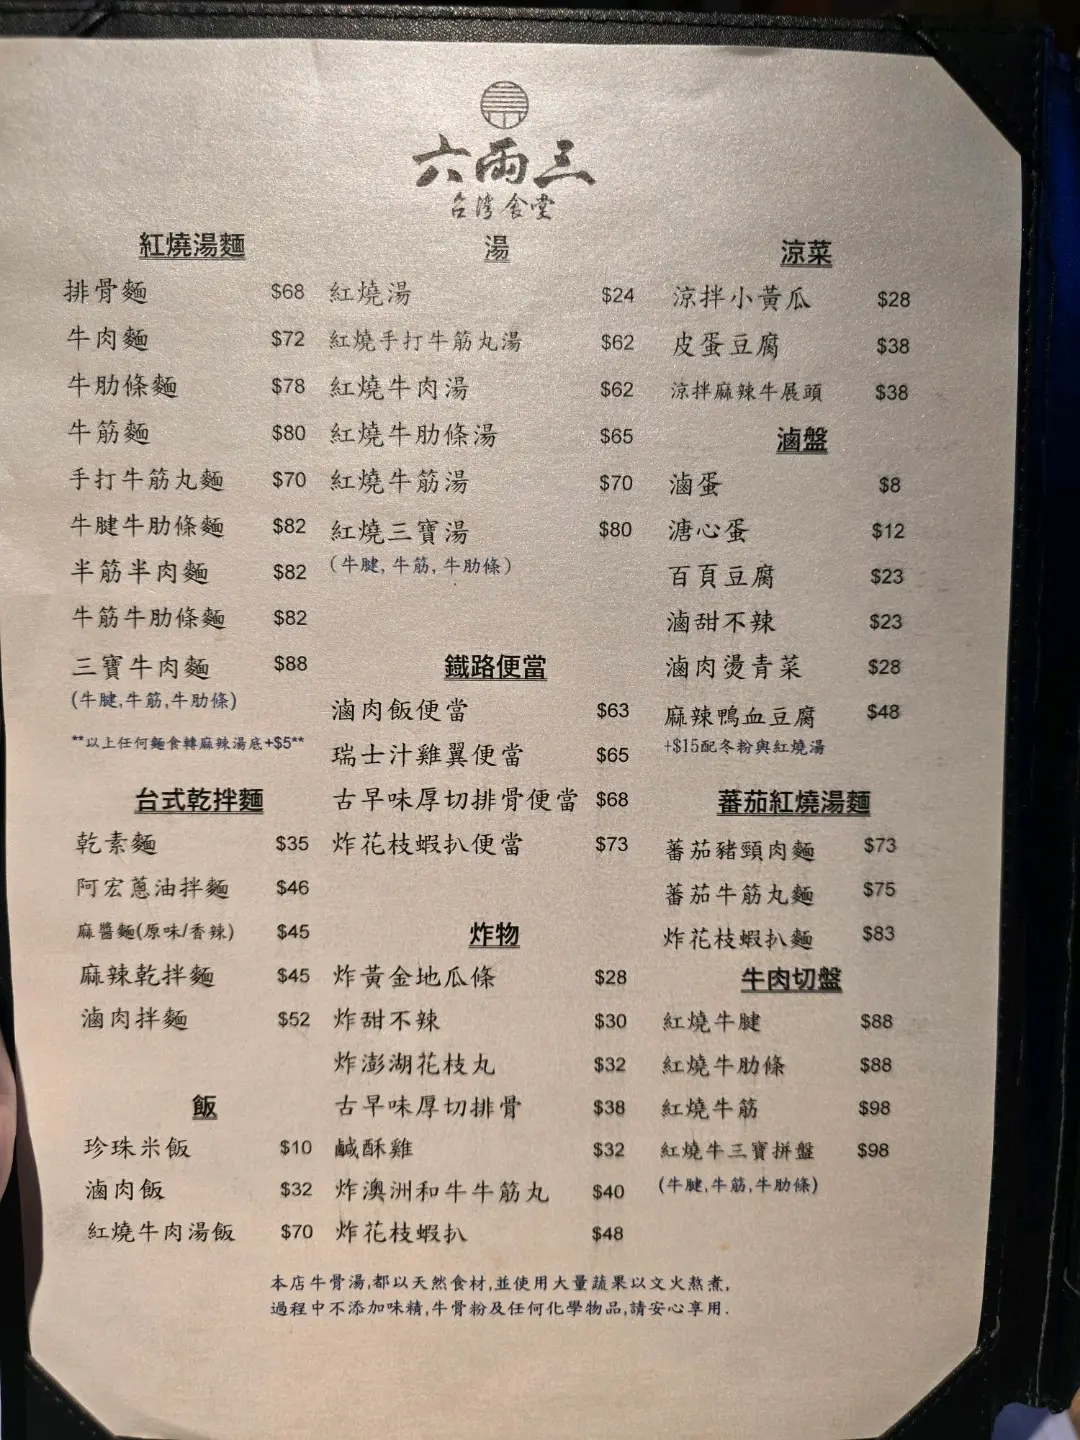 六兩三
台灣食堂
紅燒湯麵
排骨麵 $68
牛肉麵 $72
牛肋條麵 $78
牛筋麵 $80
手打牛筋丸麵 $70
牛腱牛肋條麵 $82
半筋半肉麵 $82
牛筋牛肋條麵 $82
三寶牛肉麵 $88
(牛腱,牛筋,牛肋條)
**以上任何麵食轉麻辣湯底+$5**
台式乾拌麵
乾素麵 $35
阿宏蔥油拌麵 $46
麻醬麵(原味/香辣) $45
麻辣乾拌麵 $45
滷肉拌麵 $52
飯
珍珠米飯 $10
滷肉飯 $32
紅燒牛肉湯飯 $70
湯
紅燒湯 $24
紅燒手打牛筋丸湯 $62
紅燒牛肉湯 $62
紅燒牛肋條湯 $65
紅燒牛筋湯 $70
紅燒三寶湯 $80
(牛腱, 牛筋, 牛肋條)
鐵路便當
滷肉飯便當 $63
瑞士汁雞翼便當 $65
古早味厚切排骨便當 $68
炸花枝蝦扒便當 $73
炸物
炸黃金地瓜條 $28
炸甜不辣 $30
炸澎湖花枝丸 $32
古早味厚切排骨 $38
鹹酥雞 $32
炸澳洲和牛牛筋丸 $40
炸花枝蝦扒 $48
涼菜
涼拌小黃瓜 $28
皮蛋豆腐 $38
涼拌麻辣牛展頭 $38
滷盤
滷蛋 $8
溏心蛋 $12
百頁豆腐 $23
滷甜不辣 $23
滷肉燙青菜 $28
麻辣鴨血豆腐 $48
+$15配冬粉與紅燒湯
蕃茄紅燒湯麵
蕃茄豬頸肉麵 $73
蕃茄牛筋丸麵 $75
炸花枝蝦扒麵 $83
牛肉切盤
紅燒牛腱 $88
紅燒牛肋條 $88
紅燒牛筋 $98
紅燒牛三寶拼盤 $98
(牛腱,牛筋,牛肋條)
本店牛骨湯,都以天然食材,並使用大量蔬果以文火熬煮,
過程中不添加味精,牛骨粉及任何化學物品,請安心享用.